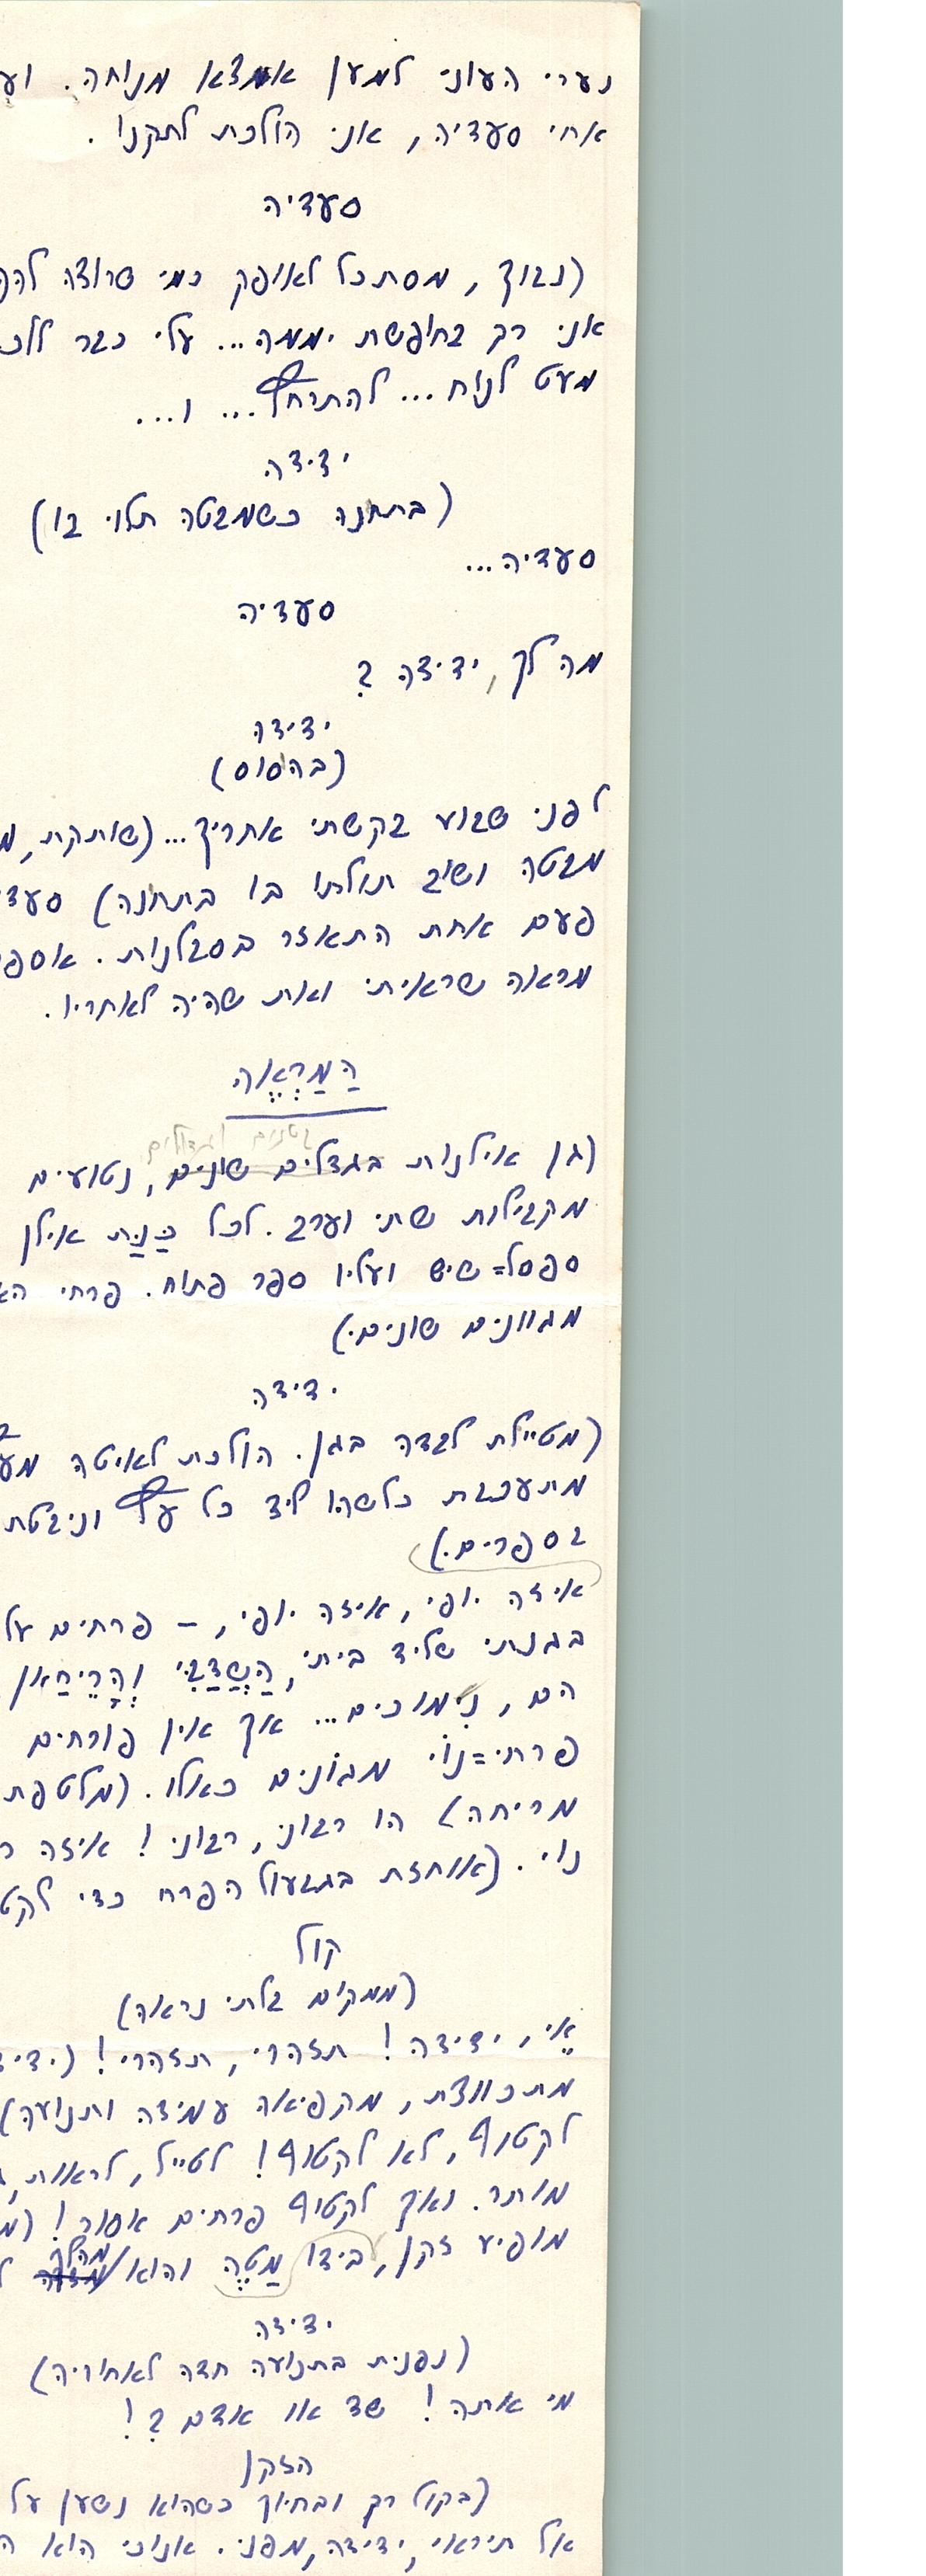 נערי העוני למען אמצא מנוחה. וע
אחי סעדיה, אני הולכת לתקנו.
סעדיה
(נבוך, מסתכל לאופק כמי שרוצה להפ
אני רק בחופשת יממה... עלי כבר ללכ
מעט לנוח... להתרחץ... ו...
ידידה
(בתחנה כשמבטה תלוי בו)
סעדיה...
סעדיה
מה לך, ידידה?
ידידה
(בהסוס)
לפני שבוע בקשתי אחריך... (שותקת, מ
מבטה ושוב תולתו בו בתחנה) סעדי
פעם אחת התאזר בסבלנות. אספ
מראה שראיתי ואת שהיה לאחריו.
הַמַּרְאֶה
קטנים וגדולים
(גן אילנות בגדלים שונים, נטועים
מקבילות שתי וערב. לכל כַּנַּת אילן
ספסל=שיש ועליו ספר פתוח. פרחי הא
מגוונים שונים.)
ידידה
(מטיילת לבדה בגן. הולכת לאיטה מע
מתעכבת כלשהו ליד כל עץ ונבטת
בספרים.)
איזה יופי, איזה יופי, – פרחים על
בגנתי שליד ביתי, הַשַּׁדַּבִּי וְהָרֵיחַאן
הם, נִימוכים... אך אין פורחים
פרחי=נוֹי מגוֹנים כאלו. (מלטפת
מריחה) הו רבוני, רבוני! איזה ר
נוי. (אוחזת בגבעול הפרח כדי לקט
קול
(ממקום בלתי נראה)
אֵי, ידידה! תזהרי, תזהרי! (ידיד
מתכווצת, מקפיאה עמידה ותנועה)
לקטוף, לא לקטוף! לטייל, לראות,
מותר. ואך לקטוף פרחים אסור! (מ
מופיע זקן, בידו מַטֶּה והוא מהלך
ידידה
(נפנית בתנועה חדה לאחוריה)
מי אתה! שד או אדם?!
הזקן
(בקול רך ובחיוך כשהוא נשען על
אל תיראי, ידידה, מפני. אנוכי הוא ה